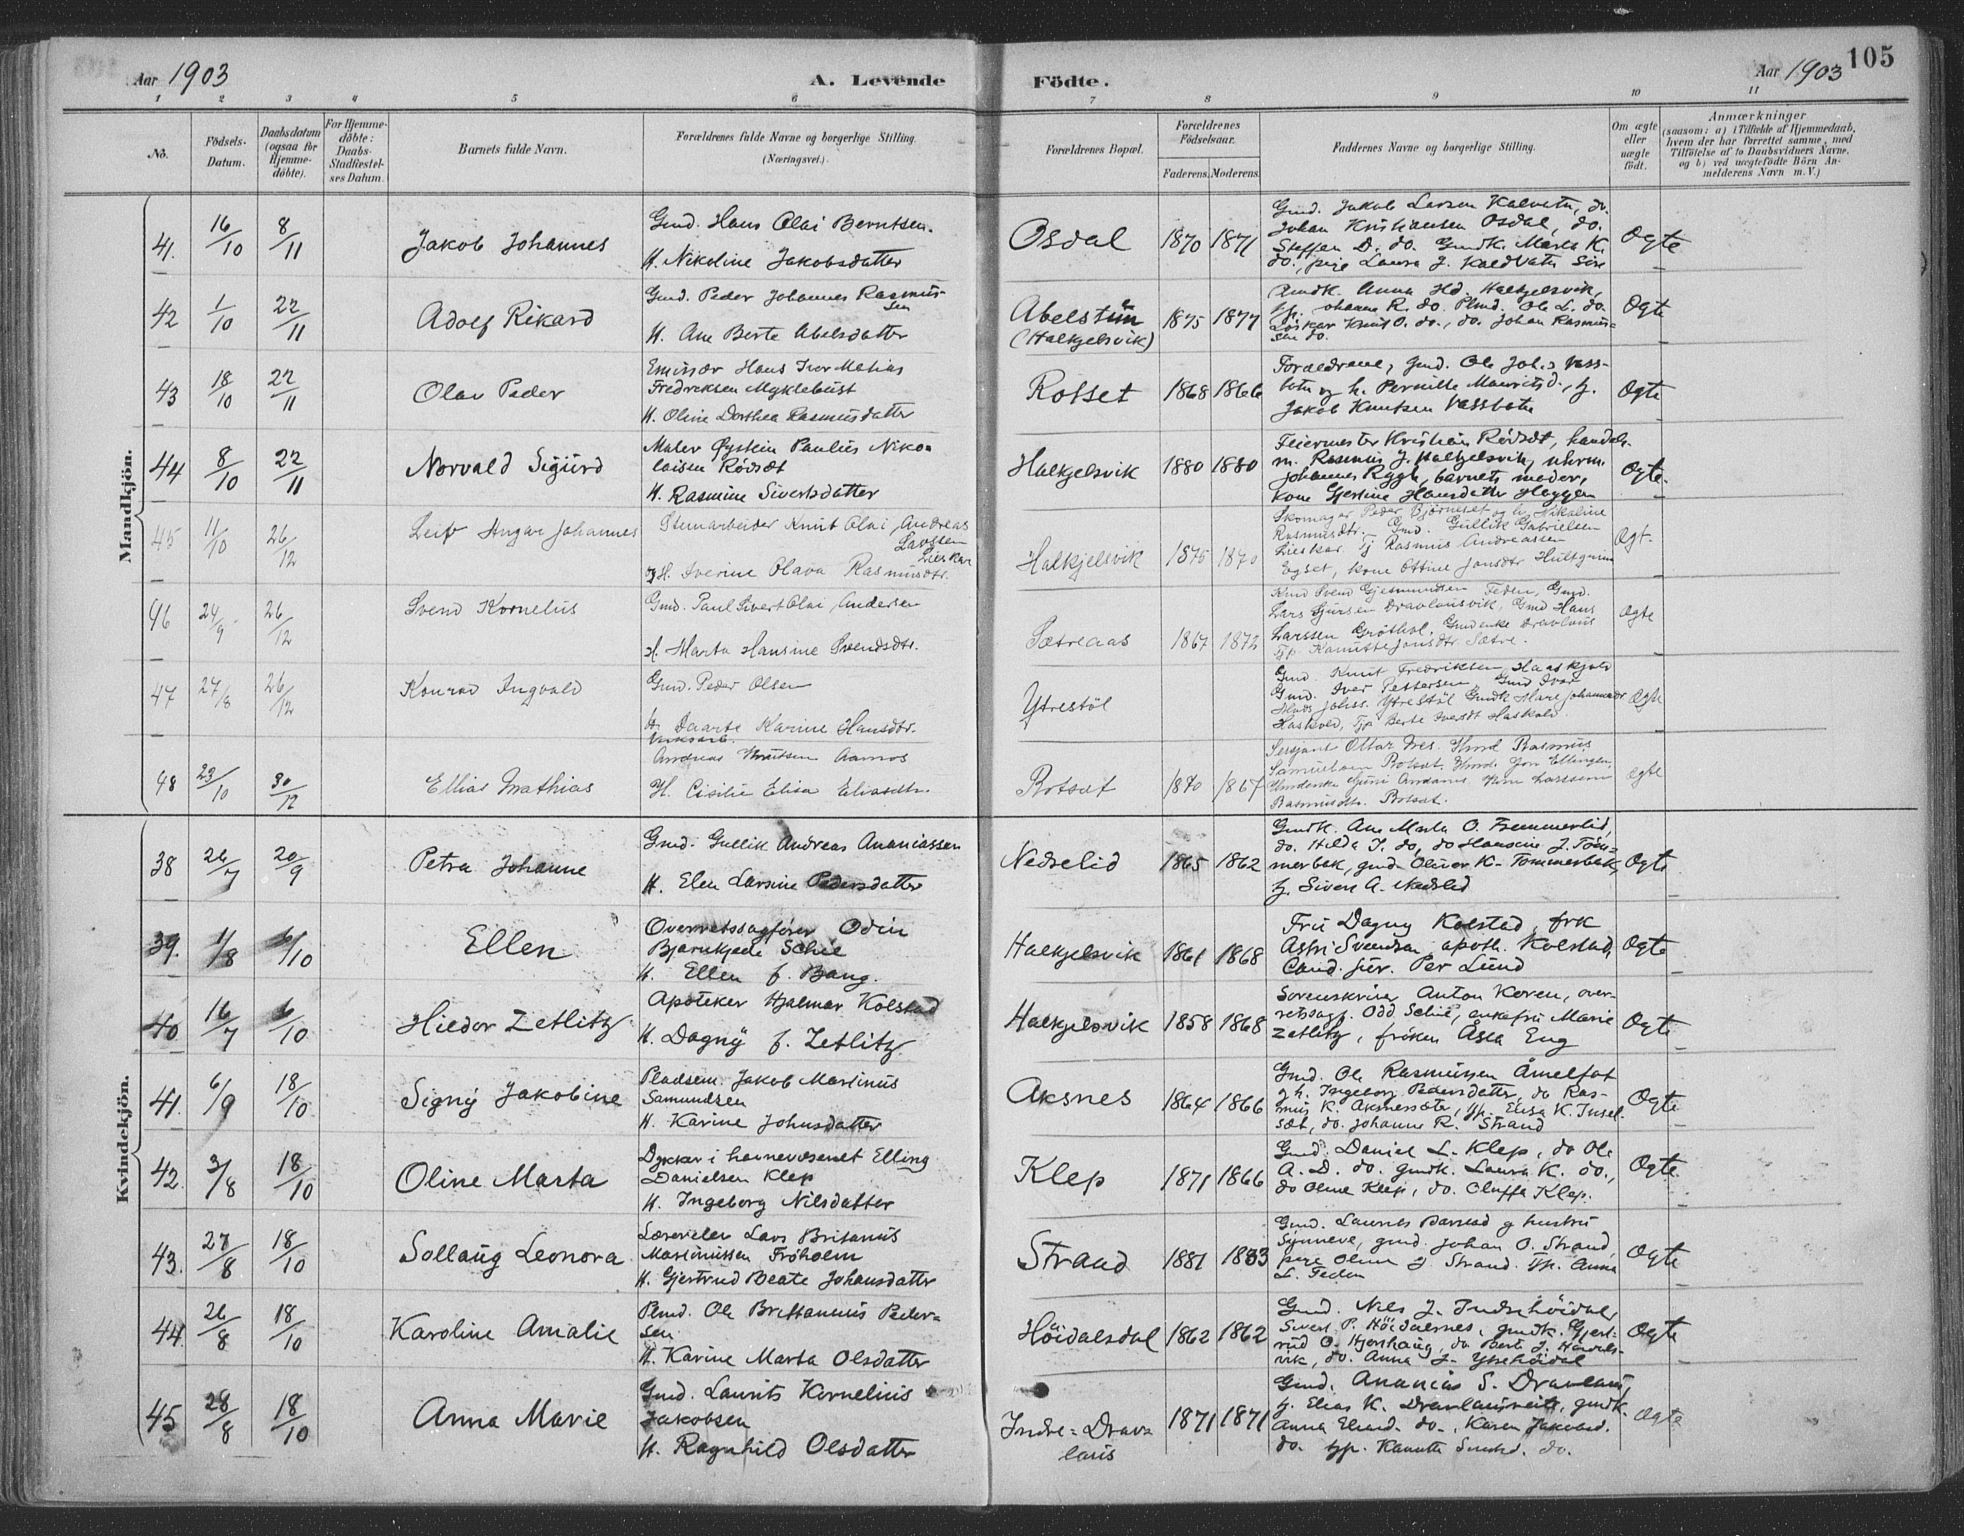 Aar 1903 A. Levende Födte. Aar 1903 105
1 2 3 4 5 6 7 8 9 10 11
No. Födsels-Datum. Daabsdatum (ogsaa for Hjemme-döbte). For Hjemme-döbte: Daabs-Stadfæstel-ses Datum. Barnets fulde Navn. Forældrenes fulde Navne og borgerlige Stilling. (Næringsvei.) Forældrenes Bopæl. Forældrenes Födselsaar. Faderens. Moderens. Faddernes Navne og borgerlige Stilling. Om ægte eller uægte födt. Anmærkninger (saasom: a) i Tilfælde af Hjemmedaab, hvem der har forrettet samme, med Tilföielse af to Daabsvidners Navne, og b) ved uægtefödte Börn An-melderens Navn m. V.)
Mandkjön.
41. 16/10 8/11 Jakob Johannes
Gmd. Hans Olai Berntsen.
H. Nikoline Jakobsdatter
Osdal 1870 1871
Gmd. Jakob Larsen Kalvatn, do.
Johan Kristiansen Osdal, do.
Steffen D. do. Gmdk. Marta K.
do., pige Laura J. Kaldvatn
Ægte
42 1/10 22/11 Adolf Rikard
Gmd. Peder Johannes Rasmus-
sen
H. Ane Berte Abelsdatter
Abelstun
(Halkjelsvik) 1875 1877
Gmdk. Anna Hd. Halkjelsvik,
Johanne R. do. Plmd. Ole L. do.
Løsker Knut O. do., do. Johan Rasmus-
sen do.
Ægte
43 18/10 22/11 Olav Peder
Emissær Hans Iver Matias
Fredriksen Myklebust
H. Oline Dorthea Rasmusdatter
Rotset 1868 1866
Forældrene, Gmd. Ole Joh.s Vass-
botn og h. Pernille Mauritsd.,
Jakob Knutsen Vassbotn
Ægte
44 8/10 22/11 Norvald Sigurd
Maler Øystein Paulus Niko-
laisen Rødsæt
H. Rasmine Sivertsdatter
Halkjelsvik 1880 1880
Feiermester Kristian Rødsæt, handels-
m. Rasmus J. Halkjelsvik, uhrm.
Johannes Rygh, barnets moder,
kone Gjertine Hansdatter Heggen
Ægte.
45 11/10 26/12 Leif Ingvar Johannes
Stenarbeider Knut Olai Andreas
Larssen
Lieskar
og H. Iverine Olava Rasmusdtr.
Halkjelsvik 1875 1870
Skomager Peder Bjørneset og h. Nikoline
Rasmusdtr. Gmd. Gullik Gabrielsen
Lieskar. Tj Rasmus Andreassen
Egset, kone Ottine Jonsdtr Hultgrenn
Ægt.
46 24/9 26/12 Svend Kornelius
Gmd. Paul Sivert Olai Andersen
H. Marta Hansine Svendsdtr.
Sætreaas 1867 1872
Gmd Svend Gjermundsen Feden, Gmd.
Lars Sjursen Dravlausvik, Gmd Hans
Larssen Grøthol, Gmdenke Dravlaus
Tjp. Kanutte Jonsdtr. Sætre.
Ægte
47 27/8 26/12 Konrad Ingvald
Gmd. Peder Olsen
H. Daarte Karine Hansdtr.
Ytrestöl
Gmd. Knut Fredriksen, Haaskjold
Gmd. Iver Pettersen, Gmd Ivar
Johss. Ytrestöl Gmdk Johannesdr
Haskold, Tjp Berte Iversdt Haskold
Ægte
48 23/10 30/12 Ellias Mathias
Andreas Knutsen Aamos
H. Cisilie Elisa Eliasdtr.
Rotsæt 1870 1867
Sergjant Ottar Nes. Kmd Rasmus
Samuelsen Rotsæt. Kmd. Jon Ellingsen,
Rasmusdtr. Rotsæt.
Ægte
Kvindekjön.
38 26/7 20/9 Petra Johanne
Gmd. Gullik Andreas Ananiassen
H. Elen Larsine Pedersdatter
Nedrelid 1865 1862
Gmdk. Ane Marta O. Tremmerlid,
do. Hilda I. do, do Hansine J. Tom-
merbak, gmd. Oliver K. Tommerbak,
Sivert A. Nedrelid
Ægte
39. 1/8 4/10 Ellen
Overretssagfører Odin
Bjarnhjede Schie
H. Ellen f. Bang.
Halkjelsvik 1861 1868
Fru Dagny Kolstad, frk
Astri Svendsen apoth. Kolstad,
Cand. jur. Per Lund
Ægte
40 16/7 4/10 Hiedor Zetlitz
Apoteker Hjalmar Kolstad
H. Dagny f. Zetlitz
Halkjelsvik 1858 1868
Sorenskriver Anton Koren, over-
retssagf. Odd Schie, enkefru Marie
Zetlitz, frøken Åsta Eng
Ægte
41. 6/9 18/10 Signy Jakobine
Pladsem. Jakob Martinus
Samundsen
H. Karine Johnsdatter
Aksnes 1864 1866
Gmd. Ole Rasmussen Åmelfot
og h. Ingeborg Pedersdatter, do Ras-
mus K. Aksnessæter, tjp. Elisa K. Insel-
sæt, do. Johanne R. Strand
Ægte
42. 3/8 18/10 Oline Marta
Dykker i havnevæsenet Elling
Danielsen Klep
H. Ingeborg Nilsdatter
Klep 1871 1866
Gmd. Daniel L. Klep, do Ole
A. D. do. gmdk. Laura K. do.,
do Oline Klep, do. Oluffa Klep.
Ægte
43. 27/8 18/10 Sollaug Leonora
Lærervikar Lars Britanus
Martinussen Frøholm
H. Gjertrud Beate Johansdatter
Strand 1881 1883
Gmd. Laurits Barstad og hustru
Synneve, gmd. Johan O. Strand,
pige Oline J. Strand. Tjp. Anna
L. Feden
Ægte
44. 26/8 18/10 Karoline Amalie
Plmd. Ole Brittannus Peder-
sen
H. Karine Marta Olsdatter
Höidalsdal 1862 1862
Gmd. Nils J. Indrehöidal,
Sivert P. Höidalsnes, gmdk. Gjert-
rud O. Hjorthaug, do Berte J.
vik, do. Anna J. Ytrehöidal
Ægte
45 28/8 18/10 Anna Marie
Gmd. Laurits Kornelius
Jakobsen
H. Ragnhild Olsdatter
Indre-Drav-
laus 1871 1871
Gmd. Ananias S. Dravlaus,
Elias K. Dravlausvik, gmdk.
Anna Eliasd. do., Karen Jakobsd.
do. tjp. Kanutte Smdsd. do.
Ægte